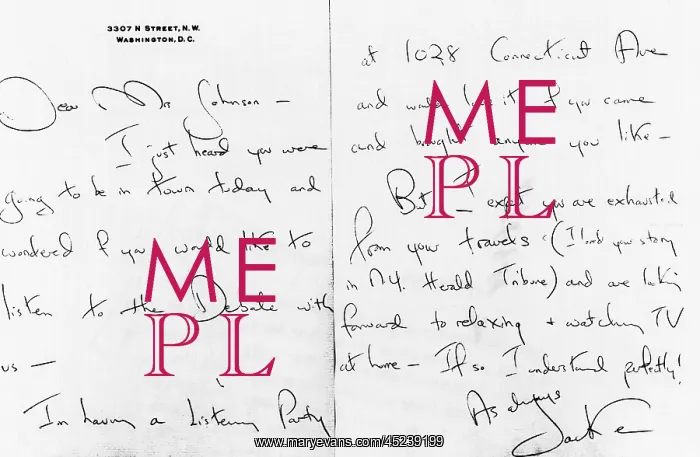 3307 N STREET, N.W.
WASHINGTON, D.C.
Dear Mrs Johnson —
I just heard you were
going to be in town today and
wondered if you would like to
listen to the Debate with
us —
I'm having a Listening Party
at 1028 Connecticut Ave
and would love it if you came
and brought anyone you like —
But I expect you are exhausted
from your travels (I loved your story
in N.Y. Herald Tribune) and are looking
forward to relaxing + watching TV
at home — If so I understand perfectly!
As always
Jackie
ME
PL
ME
PL
www.maryevans.com/45239199